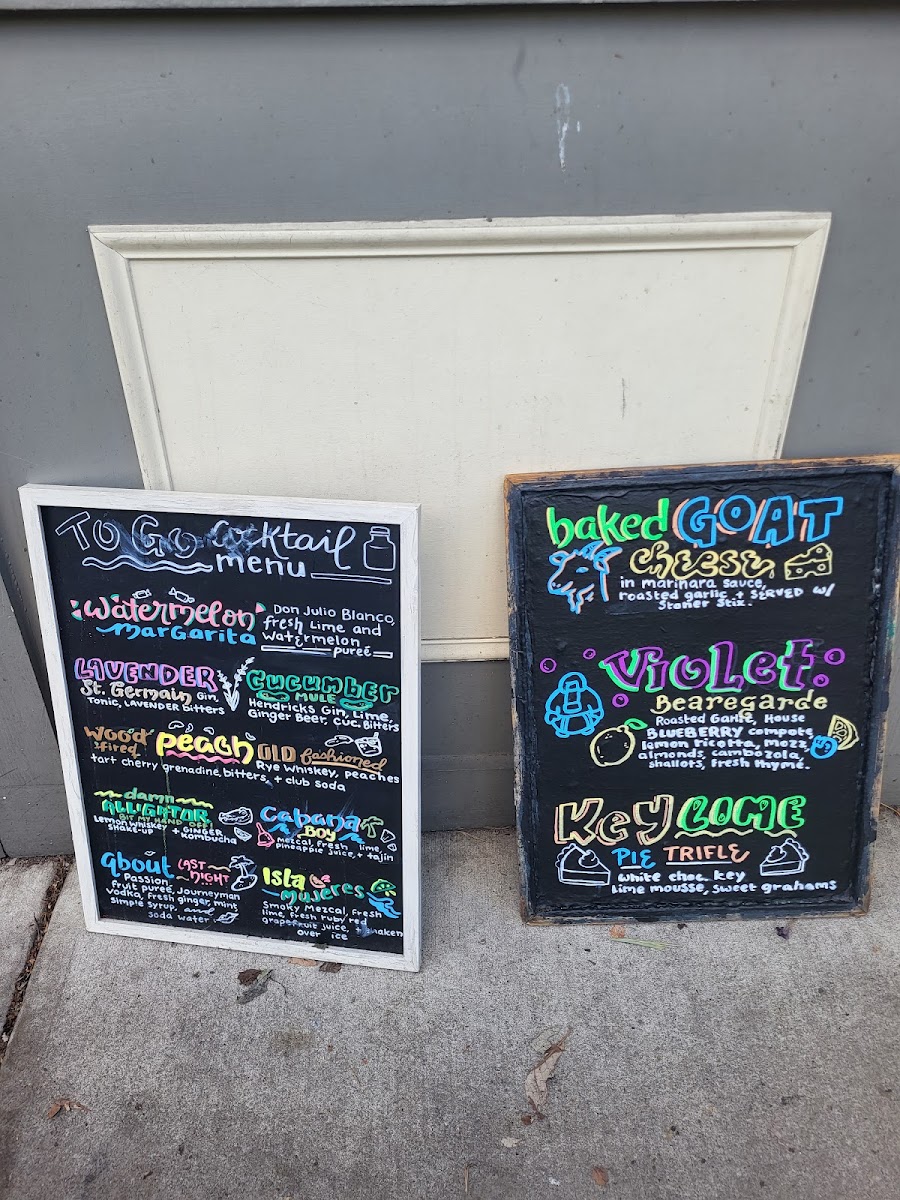 To Go Cocktail
menu
Watermelon
Margarita
Don Julio Blanco,
fresh Lime and
watermelon
pureé
LAVENDER
St. Germain Gin,
Tonic, LAVENDER Bitters
Cucumber
MULE
Hendricks Gin, Lime,
Ginger Beer, Cuc. Bitters
Wood fired peach Old fashioned
Rye Whiskey, peaches
tart cherry grenadine, bitters, + club soda
damn
ALLIGATOR
BIT MY HAND OFF!
Lemon whiskey + GINGER
SHAKE-UP Kombucha
Cabana
BOY
mezcal, fresh lime,
pineapple juice, + tajin
About LAST NIGHT
Passion
fruit pureé, Journeyman
vodka, fresh ginger, mint
simple syrup, and
soda water
Isla
Mujeres
Smoky Mezcal, fresh
lime, fresh ruby red
grapefruit juice, + shaken
over ice
baked GOAT
cheese
in marinara sauce,
roasted garlic + SERVED w/
Stoner Stix.
Violet
Bearegarde
Roasted Garlic, House
BLUEBERRY compote,
lemon ricotta, mozz,
almonds, cambozola,
shallots, fresh thyme.
Key LIME
PIE TRIFLE
white choc. key
lime mousse, sweet grahams